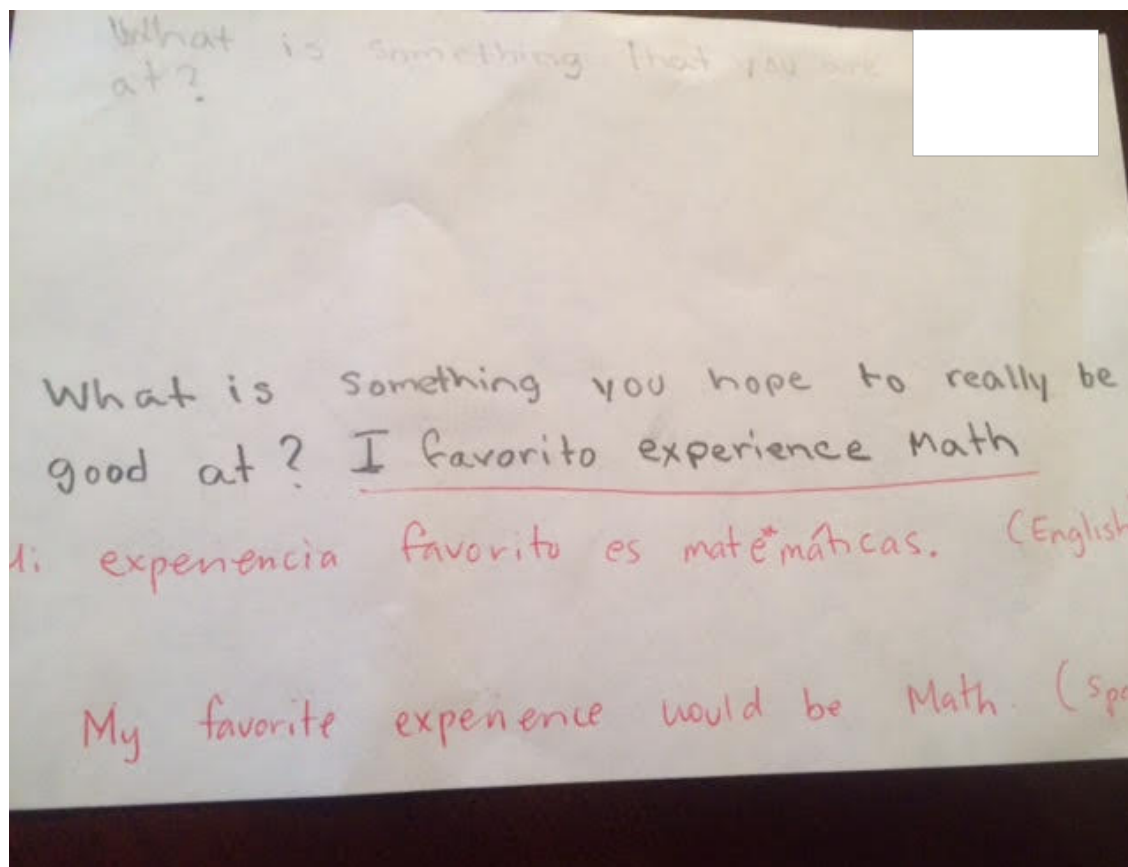 What is something that you are
at?
What is something you hope to really be
good at? I favorito experience Math
Mi experiencia favorito es matemáticas. (English
My favorite experience would be Math. (Spa